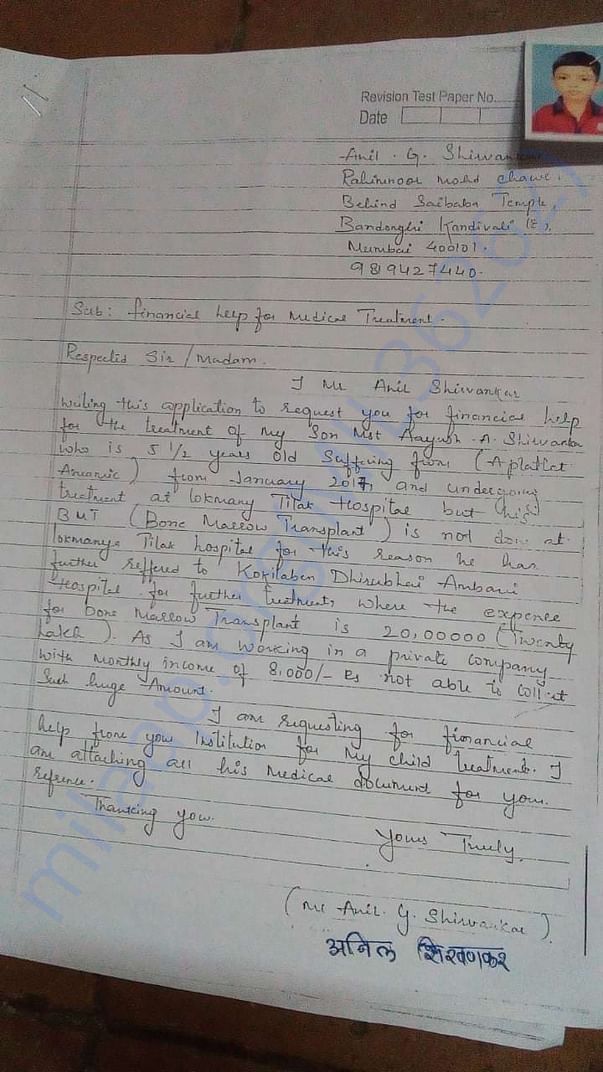 Revision Test Paper No.....
Date
Anil . G. Shirvankar
Rahimnoor Mohd chawl,
Behind Saibaba Temple,
Bandonghi Kandivali (E),
Mumbai 400101.
989427440.
Sub: financial help for Medical Treatment.
Respected Sir / Madam.
I Mr Anil Shirvankar
writing this application to request you for financial help
for the treatment of My Son Mst Aayush .A. Shirvanka
who is 5 1/2 years old Suffering from (Aplatict
Aneamic) from January 2017, and undergoing
treatment at lokmany Tilak Hospital but his
BMT (Bone Marrow Transplant) is not done at
lokmanya Tilak hospital for this reason he has
further reffered to Kokilaben Dhirubhai Ambani
Hospital for further treatment, where the expence
for bone Marrow Transplant is 20,00000 (Twenty
Lakh). As I am working in a private company
with monthly income of 8,000/- Rs not able to collect
Such huge Amount.
I am requesting for financial
help from your Institution for My child treatment. I
am attaching all his Medical document for your
refrence.
Thanking you.
Yours Truly,
(Mr Anil. G. Shirvankar)
अनिल शिरवणकर